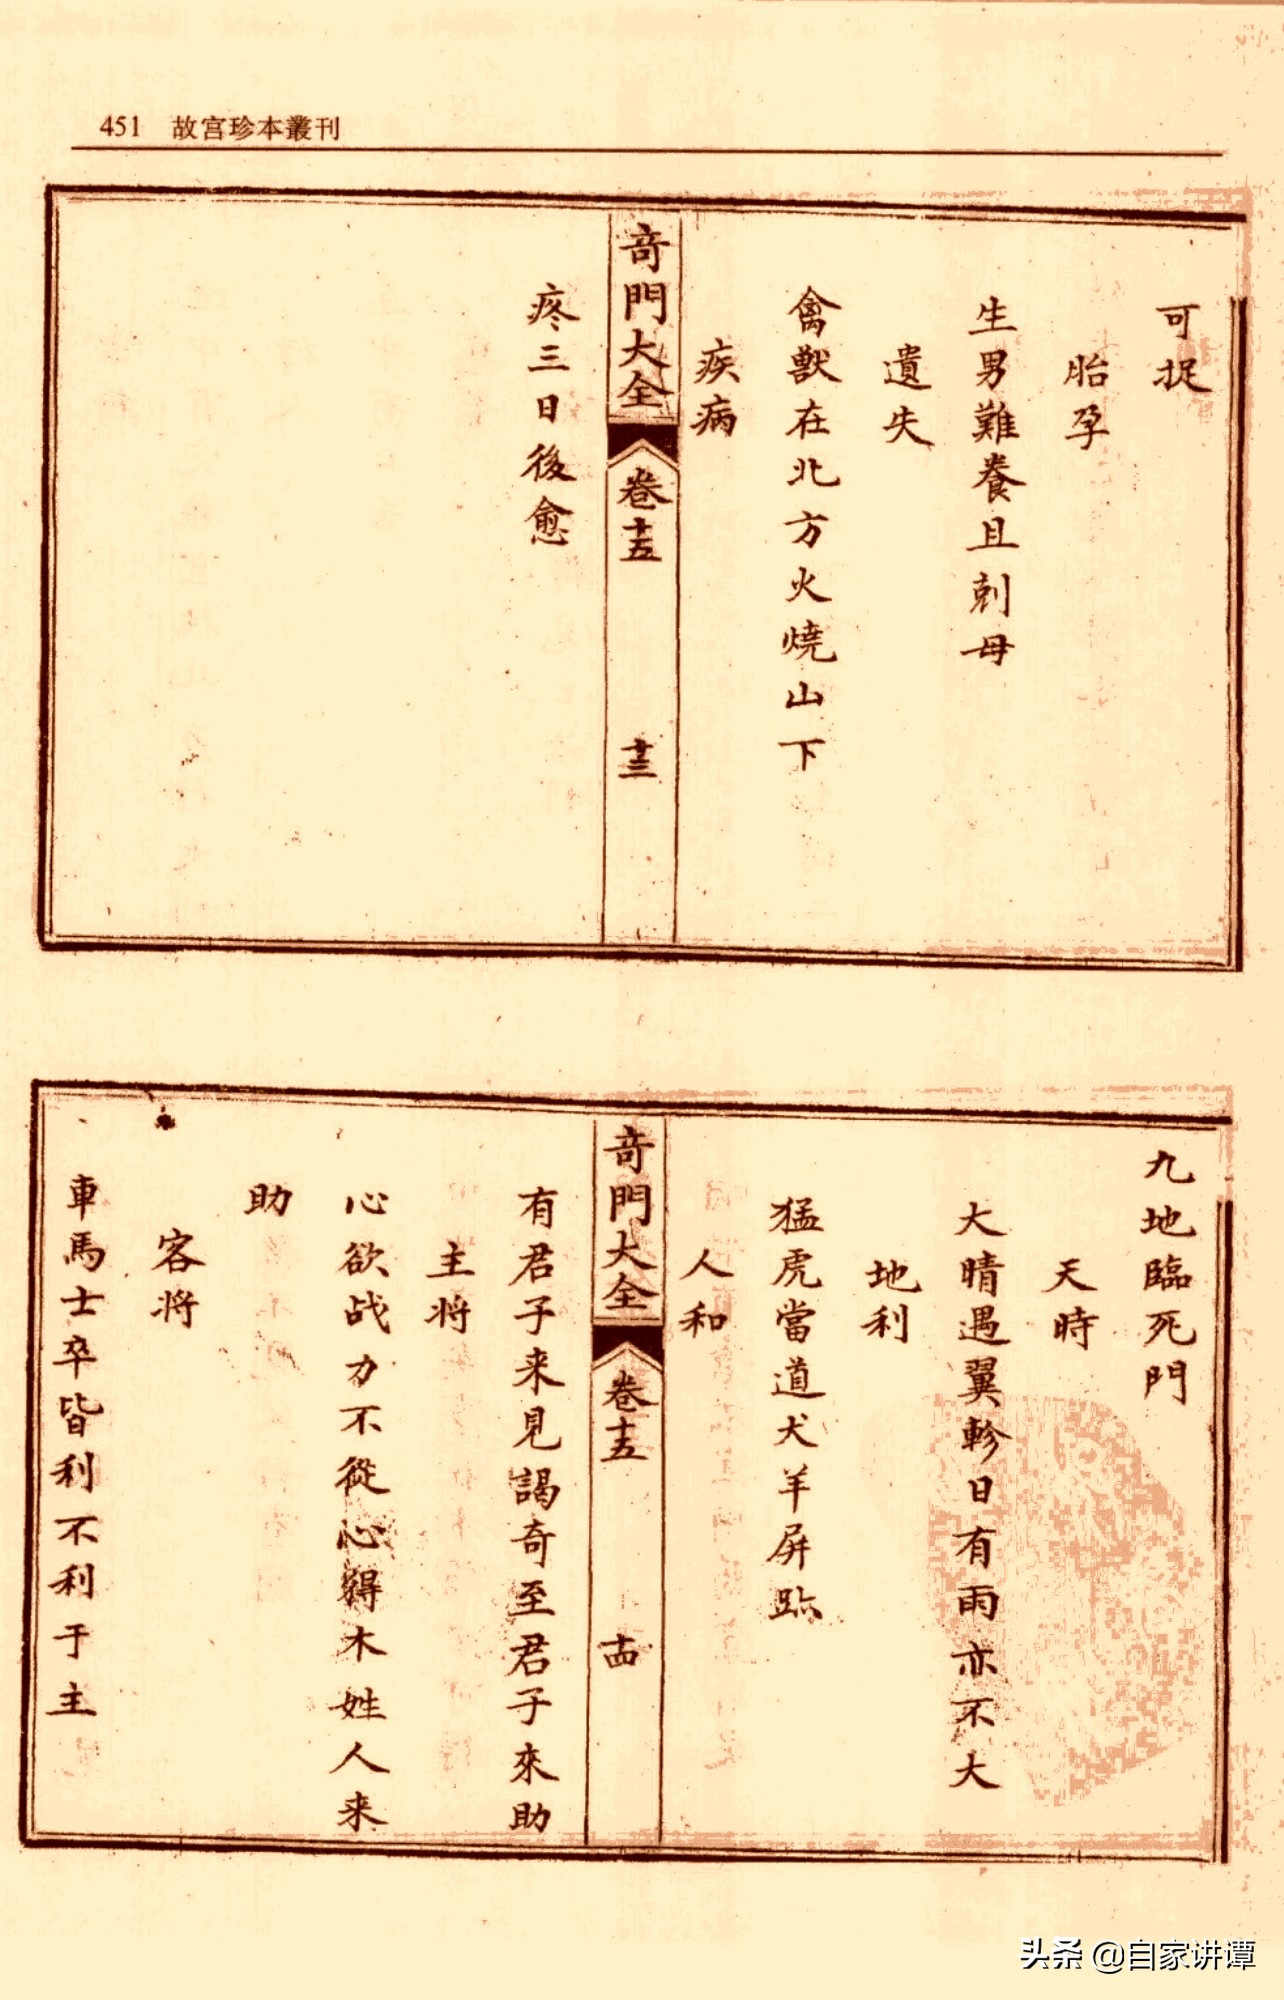 451 故宫珍本叢刊
可捉
胎孕
生男難養且剋母
遺失
禽獸在北方火燒山下
疾病
奇門大全 卷十五 十三
疼三日後愈
九地臨死門
天時
大晴遇翼軫日有雨亦不大
地利
猛虎當道犬羊屏跡
人和
奇門大全 卷十五 十四
有君子来見謁奇至君子來助
主将
心欲战力不從心得木姓人来
助
客将
車馬士卒皆利不利于主
头条 @自家讲谭